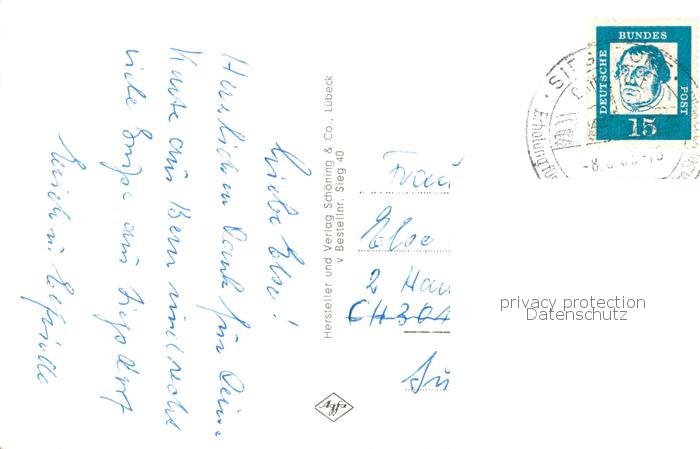 Liebe Else!
Herzlichen Dank für Deine
Karte aus Bern und recht
viele Grüße aus Siegsdorf
Erich u. Elfriede
Hersteller und Verlag Schöning & Co., Lübeck
v Bestellnr. Sieg 40
Agfa
Frau
Else
2 Han
CH 304
DEUTSCHE
BUNDES
POST
15
SIE
Erholung
privacy protection
Datenschutz